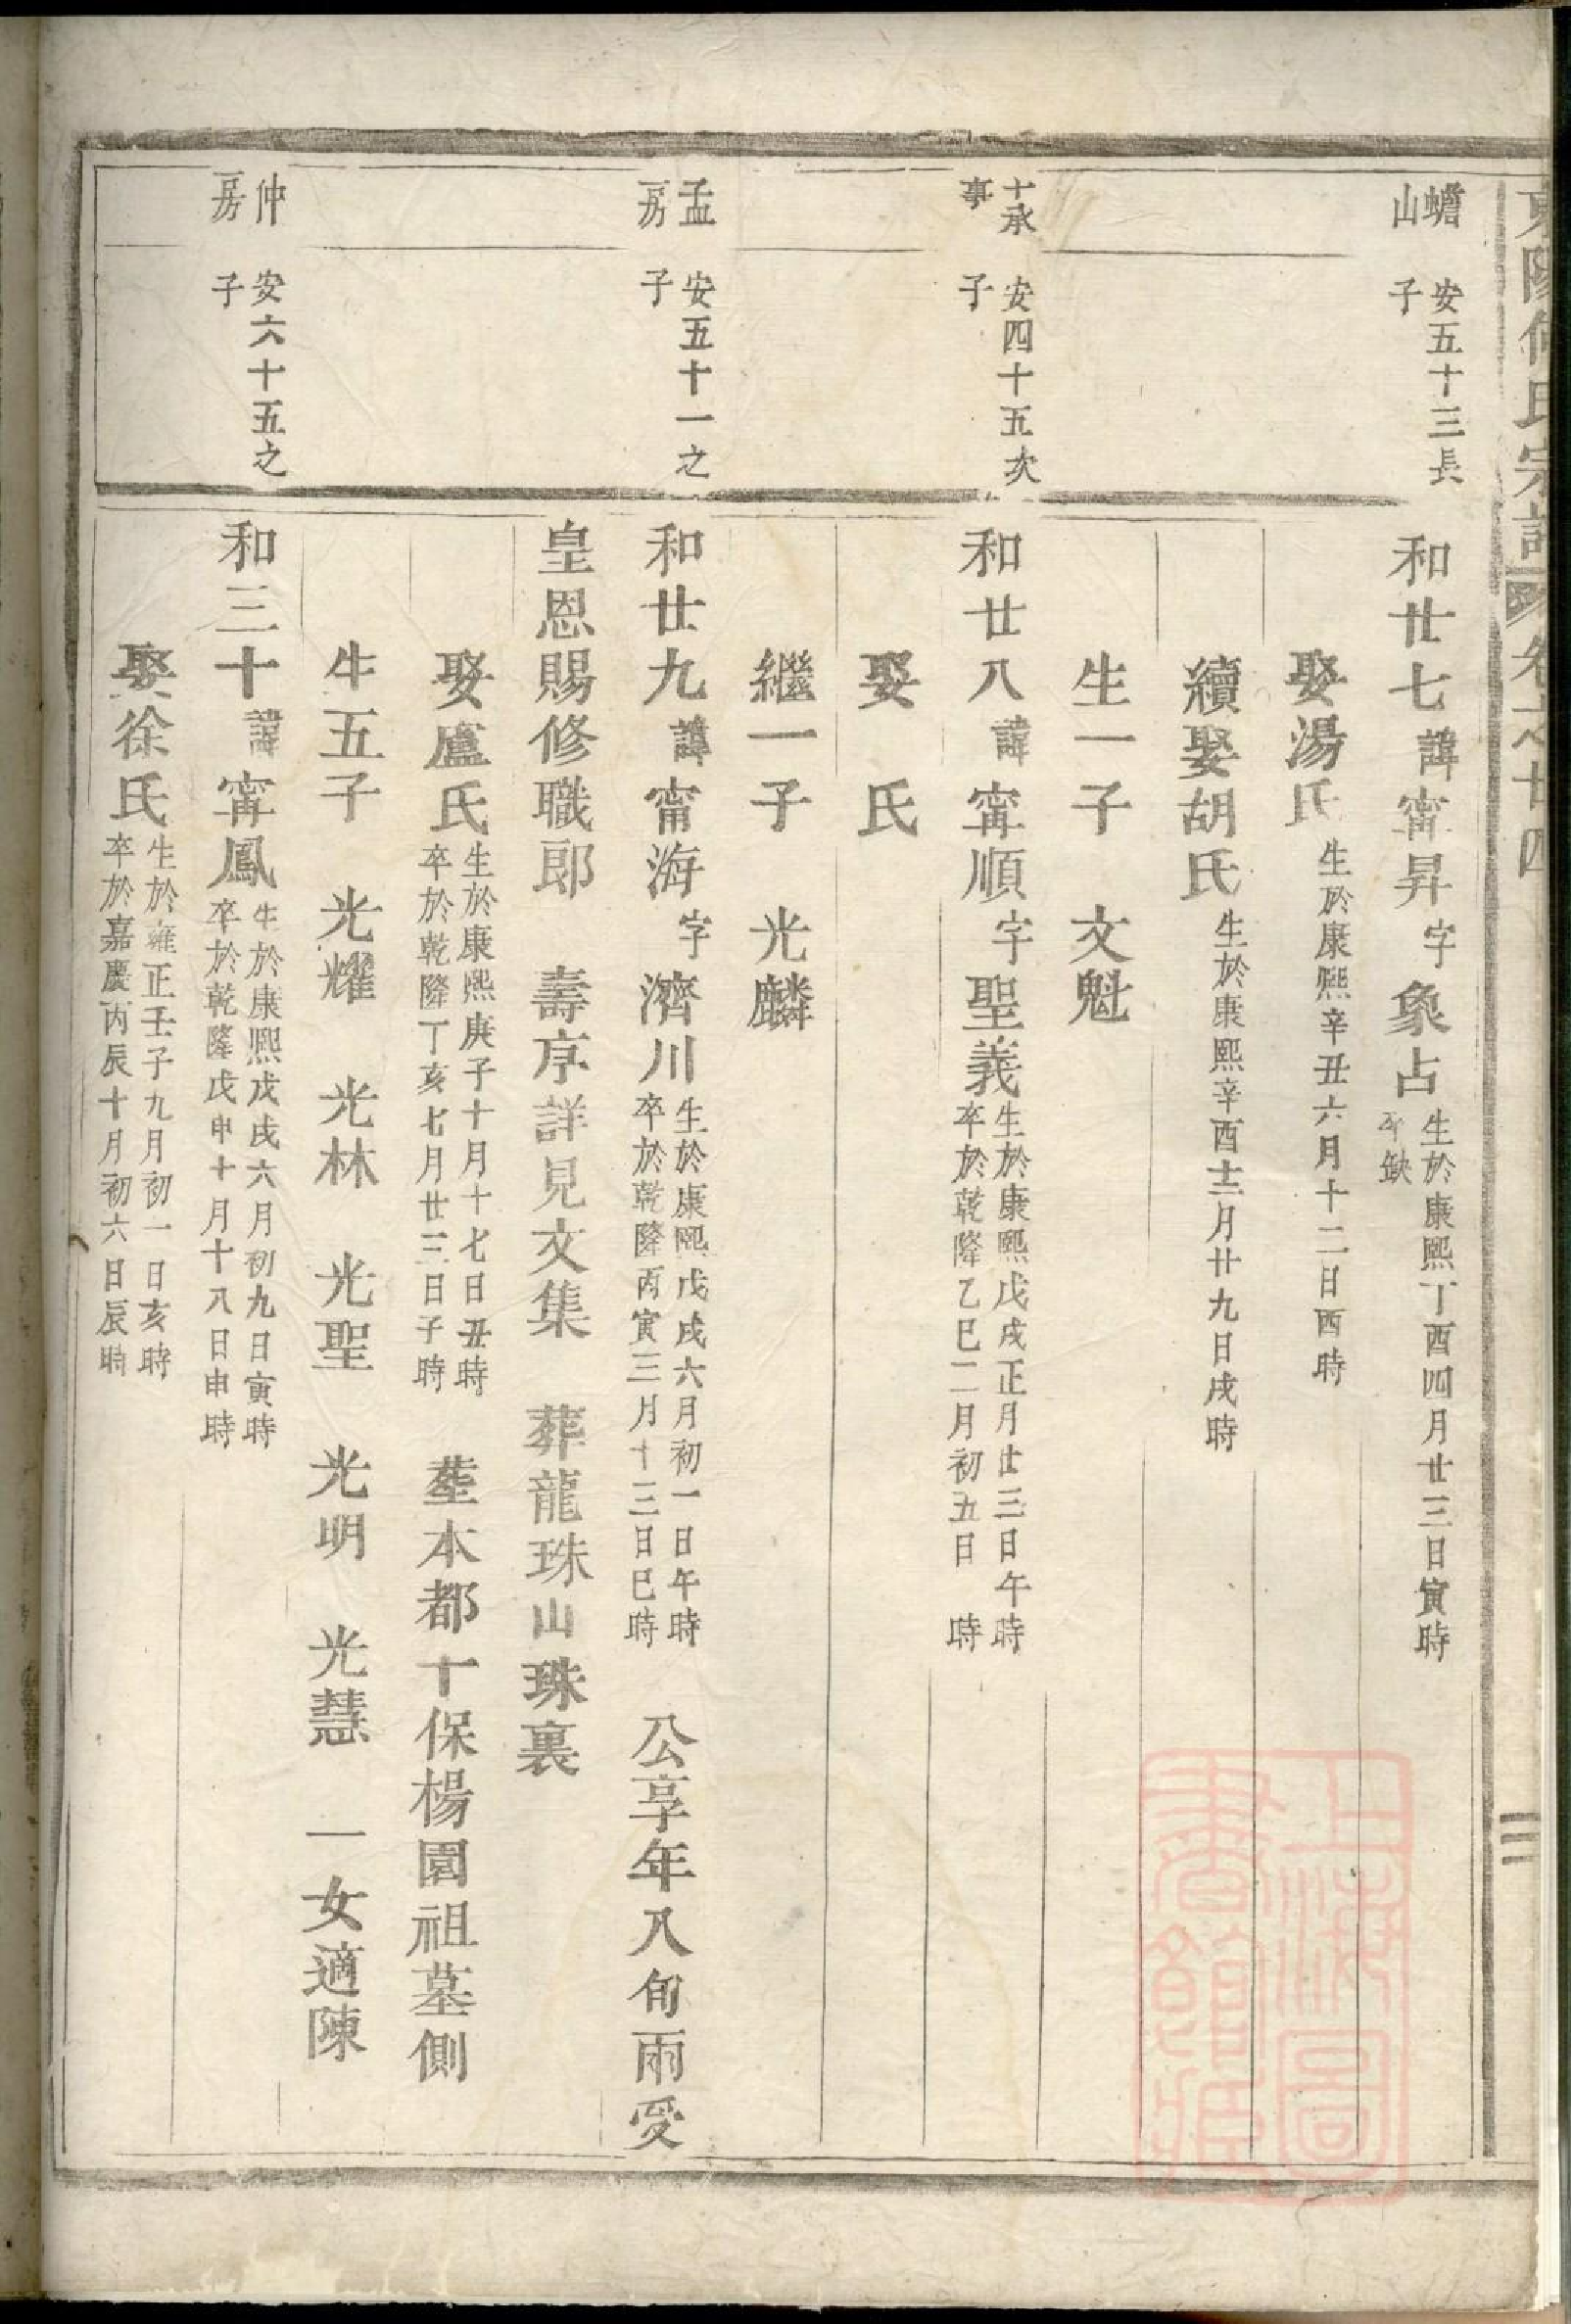 東陽何氏宗譜 卷之廿四 三
蟾山
安五十三長子
和廿七諱甯昇字象占 生於康熙丁酉四月廿三日寅時 卒缺
娶湯氏 生於康熙辛丑六月十二日酉時
續娶胡氏 生於康熙辛酉十二月廿九日戌時
生一子 文魁
十承事
安四十五次子
和廿八諱甯順字聖義 生於康熙戊戌正月廿三日午時 卒於乾隆乙巳二月初五日 時
娶 氏
繼一子 光麟
孟房
安五十一之子
和廿九諱甯海字濟川 生於康熙戊戌六月初一日午時 卒於乾隆丙寅三月十三日巳時 公享年八旬雨受
皇恩賜修職郎 壽序詳見文集 葬龍珠山珠裏
娶盧氏 生於康熙庚子十月十七日丑時 卒於乾隆丁亥七月廿三日子時 塟本都十保楊園祖墓側
生五子 光耀 光林 光聖 光明 光慧 一女適陳
仲房
安六十五之子
和三十諱甯鳳 生於康熙戊戌六月初九日寅時 卒於乾隆戊申十月十八日申時
娶徐氏 生於雍正壬子九月初一日亥時 卒於嘉慶丙辰十月初六日辰時
上海圖書館藏